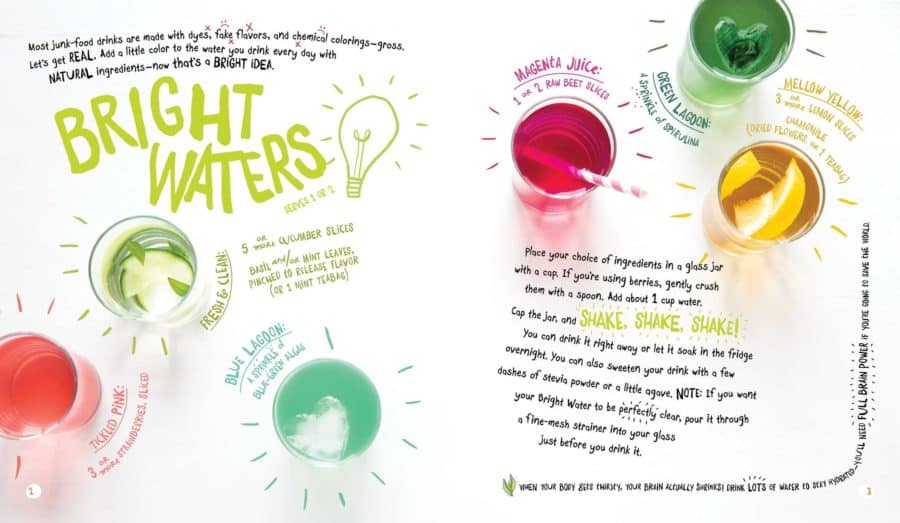 Most junk-food drinks are made with dyes, fake flavors, and chemical colorings—gross.
Let's get REAL. Add a little color to the water you drink every day with
NATURAL ingredients—now that's a BRIGHT IDEA.
BRIGHT
WATERS
SERVES 1 OR 2
FRESH & CLEAN:
5 or more CUCUMBER SLICES
BASIL and/or MINT LEAVES,
PINCHED TO RELEASE FLAVOR
(OR 1 MINT TEABAG)
BLUE LAGOON:
A SPRINKLE of
BLUE-GREEN ALGAE
TICKLED PINK:
3 or more STRAWBERRIES, SLICED
2
MAGENTA JUICE:
1 OR 2 RAW BEET SLICES
GREEN LAGOON:
A SPRINKLE of SPIRULINA
MELLOW YELLOW:
3 or more LEMON SLICES
CHAMOMILE
(DRIED FLOWERS, OR 1 TEABAG)
Place your choice of ingredients in a glass jar
with a cap. If you're using berries, gently crush
them with a spoon. Add about 1 cup water.
Cap the jar, and SHAKE, SHAKE, SHAKE!
You can drink it right away or let it soak in the fridge
overnight. You can also sweeten your drink with a few
dashes of stevia powder or a little agave. NOTE: If you want
your Bright Water to be perfectly clear, pour it through
a fine-mesh strainer into your glass
just before you drink it.
WHEN YOUR BODY GETS THIRSTY, YOUR BRAIN ACTUALLY SHRINKS! DRINK LOTS OF WATER TO STAY HYDRATED—YOU'LL NEED FULL BRAIN POWER IF YOU'RE GOING TO SAVE THE WORLD.
3